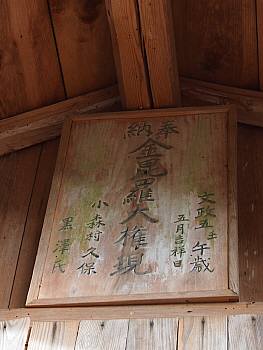 奉納
金毘羅大権現
文政五壬午歳
五月吉祥日
小森村久保
黒澤氏